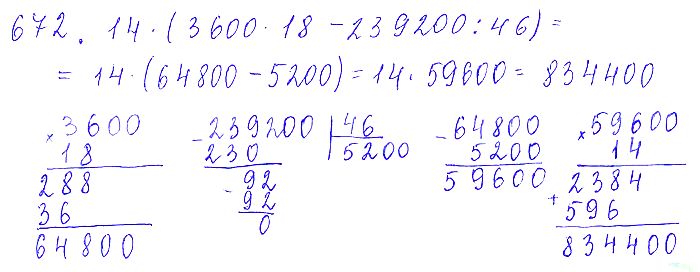 672. 14·(3600·18-239200:46)=
=14·(64800-5200)=14·59600=834400
×3600
18
288
36
64800
-239200 |46
230 |5200
-92
92
0
-64800
5200
59600
×59600
14
2384
+
596
834400